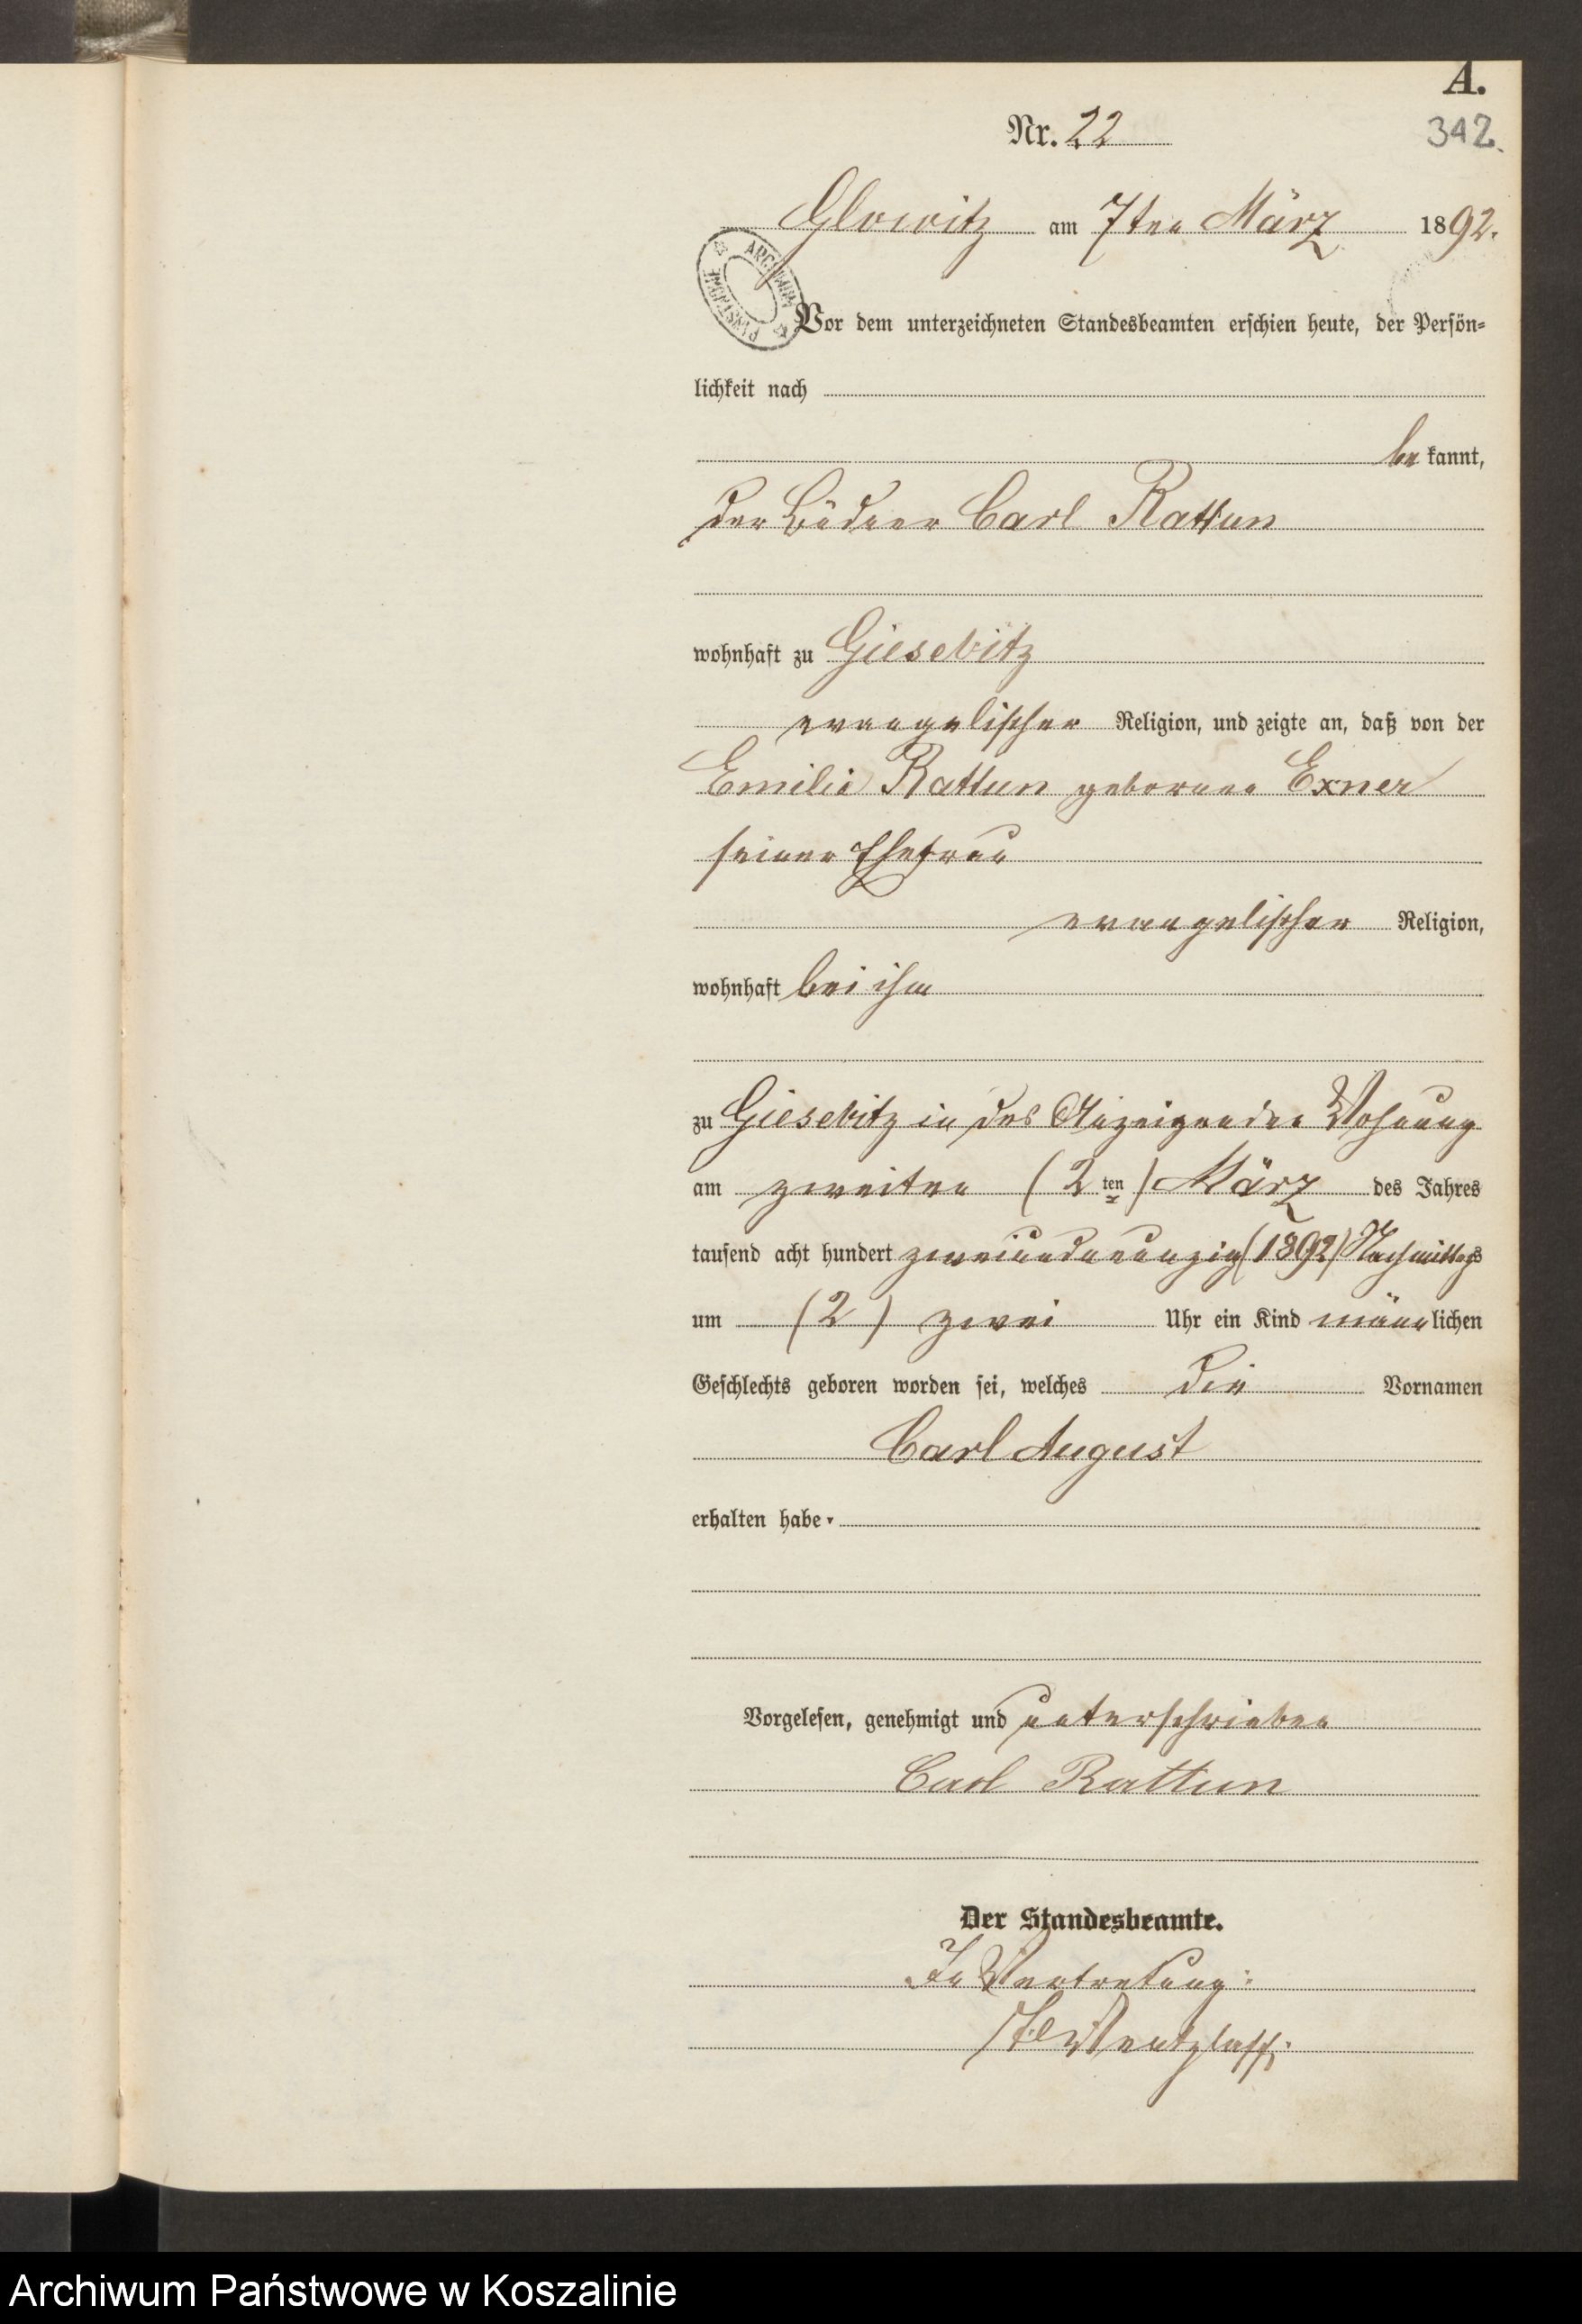 A.
Nr. 22
342.
Glowitz am 7ten März 1892.
ARCHIWUM PAŃSTWOWE
Vor dem unterzeichneten Standesbeamten erschien heute, der Persön-
lichkeit nach
be kannt,
der Büdner Carl Rattun
wohnhaft zu Giesebitz
evangelischer Religion, und zeigte an, daß von der
Emilie Rattun geborenen Exner
seiner Ehefrau
evangelischer Religion,
wohnhaft bei ihm
zu Giesebitz in des Anzeigenden Wohnung
am zweiten (2ten) März des Jahres
tausend acht hundert zweiundneunzig (1892) Nachmittags
um (2) zwei Uhr ein Kind männlichen
Geschlechts geboren worden sei, welches die Vornamen
Carl August
erhalten habe.
Vorgelesen, genehmigt und unterschrieben
Carl Rattun
Der Standesbeamte.
In Vertretung:
Wentzlaff.
Archiwum Państwowe w Koszalinie